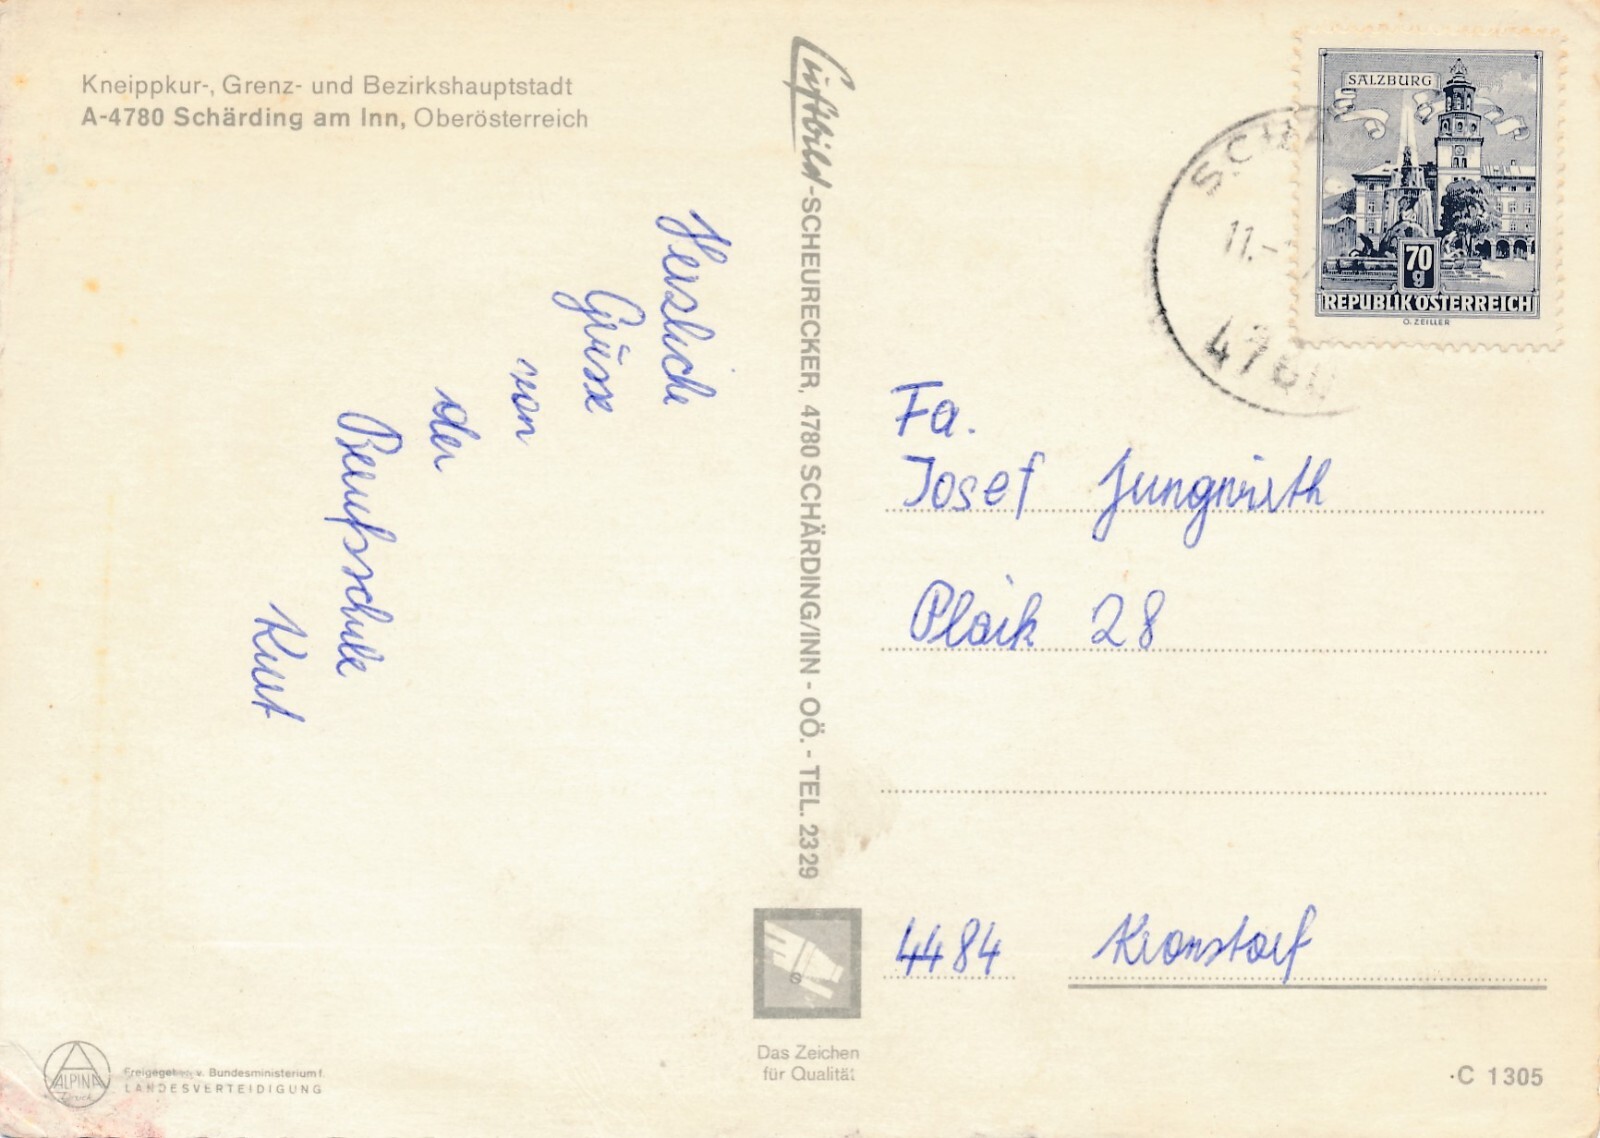 Kneippkur-, Grenz- und Bezirkshauptstadt
A-4780 Schärding am Inn, Oberösterreich
Herzliche
Grüsse
von
der
Berufsschule
Kurt
Luftbild-SCHEURECKER, 4780 SCHÄRDING/INN - OÖ. - TEL. 2329
Das Zeichen
für Qualität
ALPINA
Freigegeben v. Bundesministerium f.
LANDESVERTEIDIGUNG
SALZBURG
70
g
REPUBLIK ÖSTERREICH
O. ZEILLER
SCHÄ
11.-
4780
Fa.
Josef Jungwirth
Plaik 28
4484 Kronstorf
C 1305